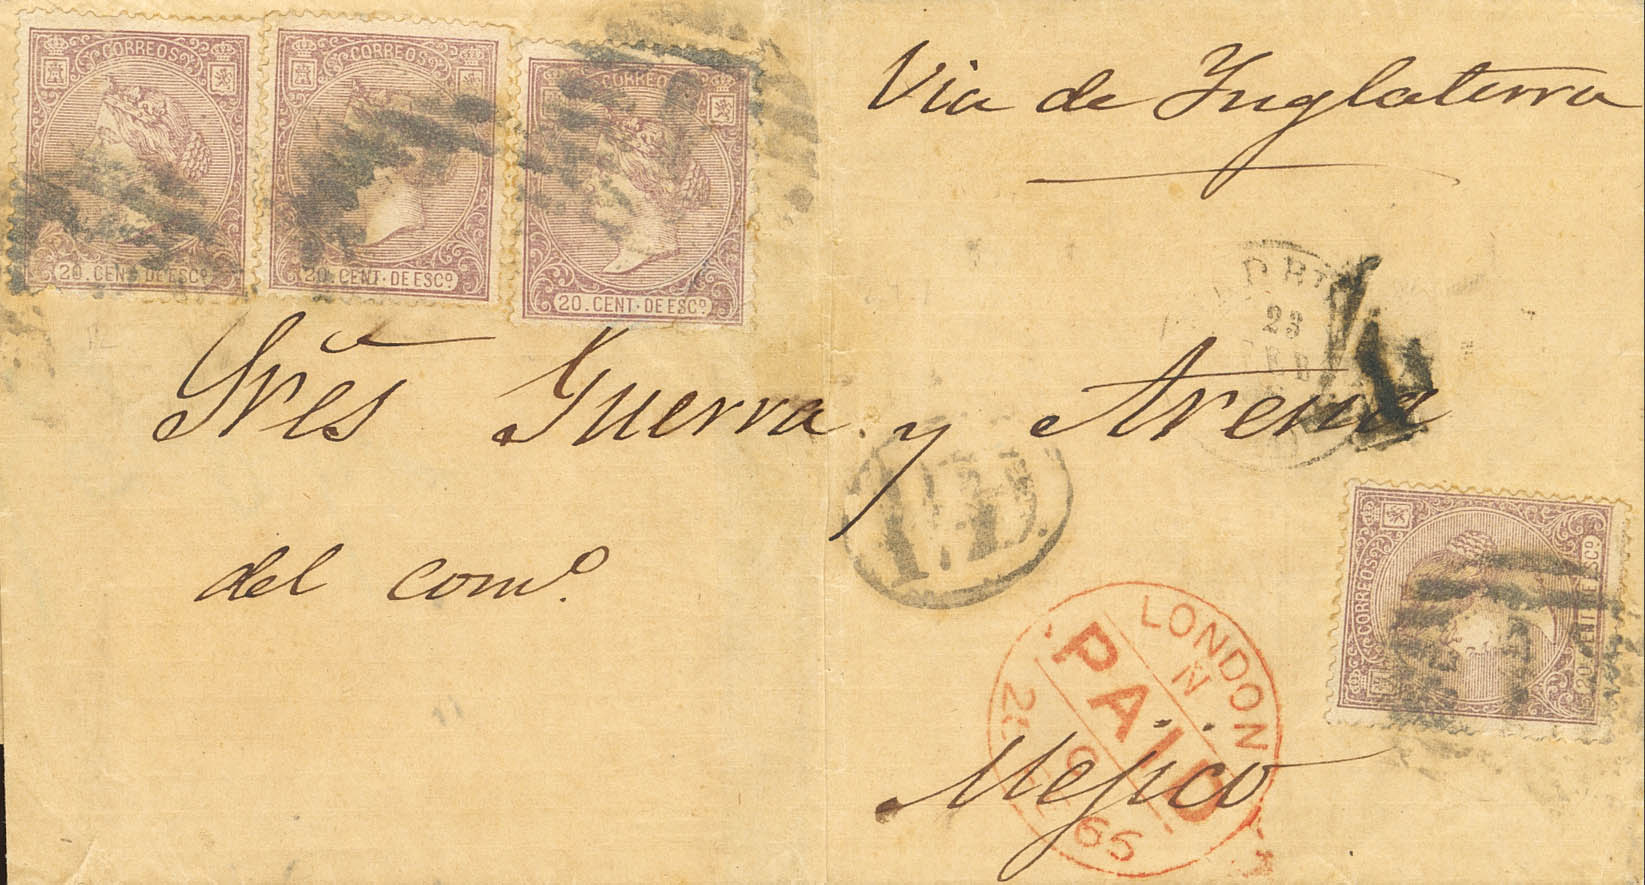 CORREOS
20. CENT. DE ESCº
CORREOS
20. CENT. DE ESCº
CORREOS
20. CENT. DE ESCº
Via de Inglaterra
23
Sres Guerra y Arena
P.D.
del comº.
CORREOS
20 CENT DE ESCº
LONDON
N
PAID
65
Mejico